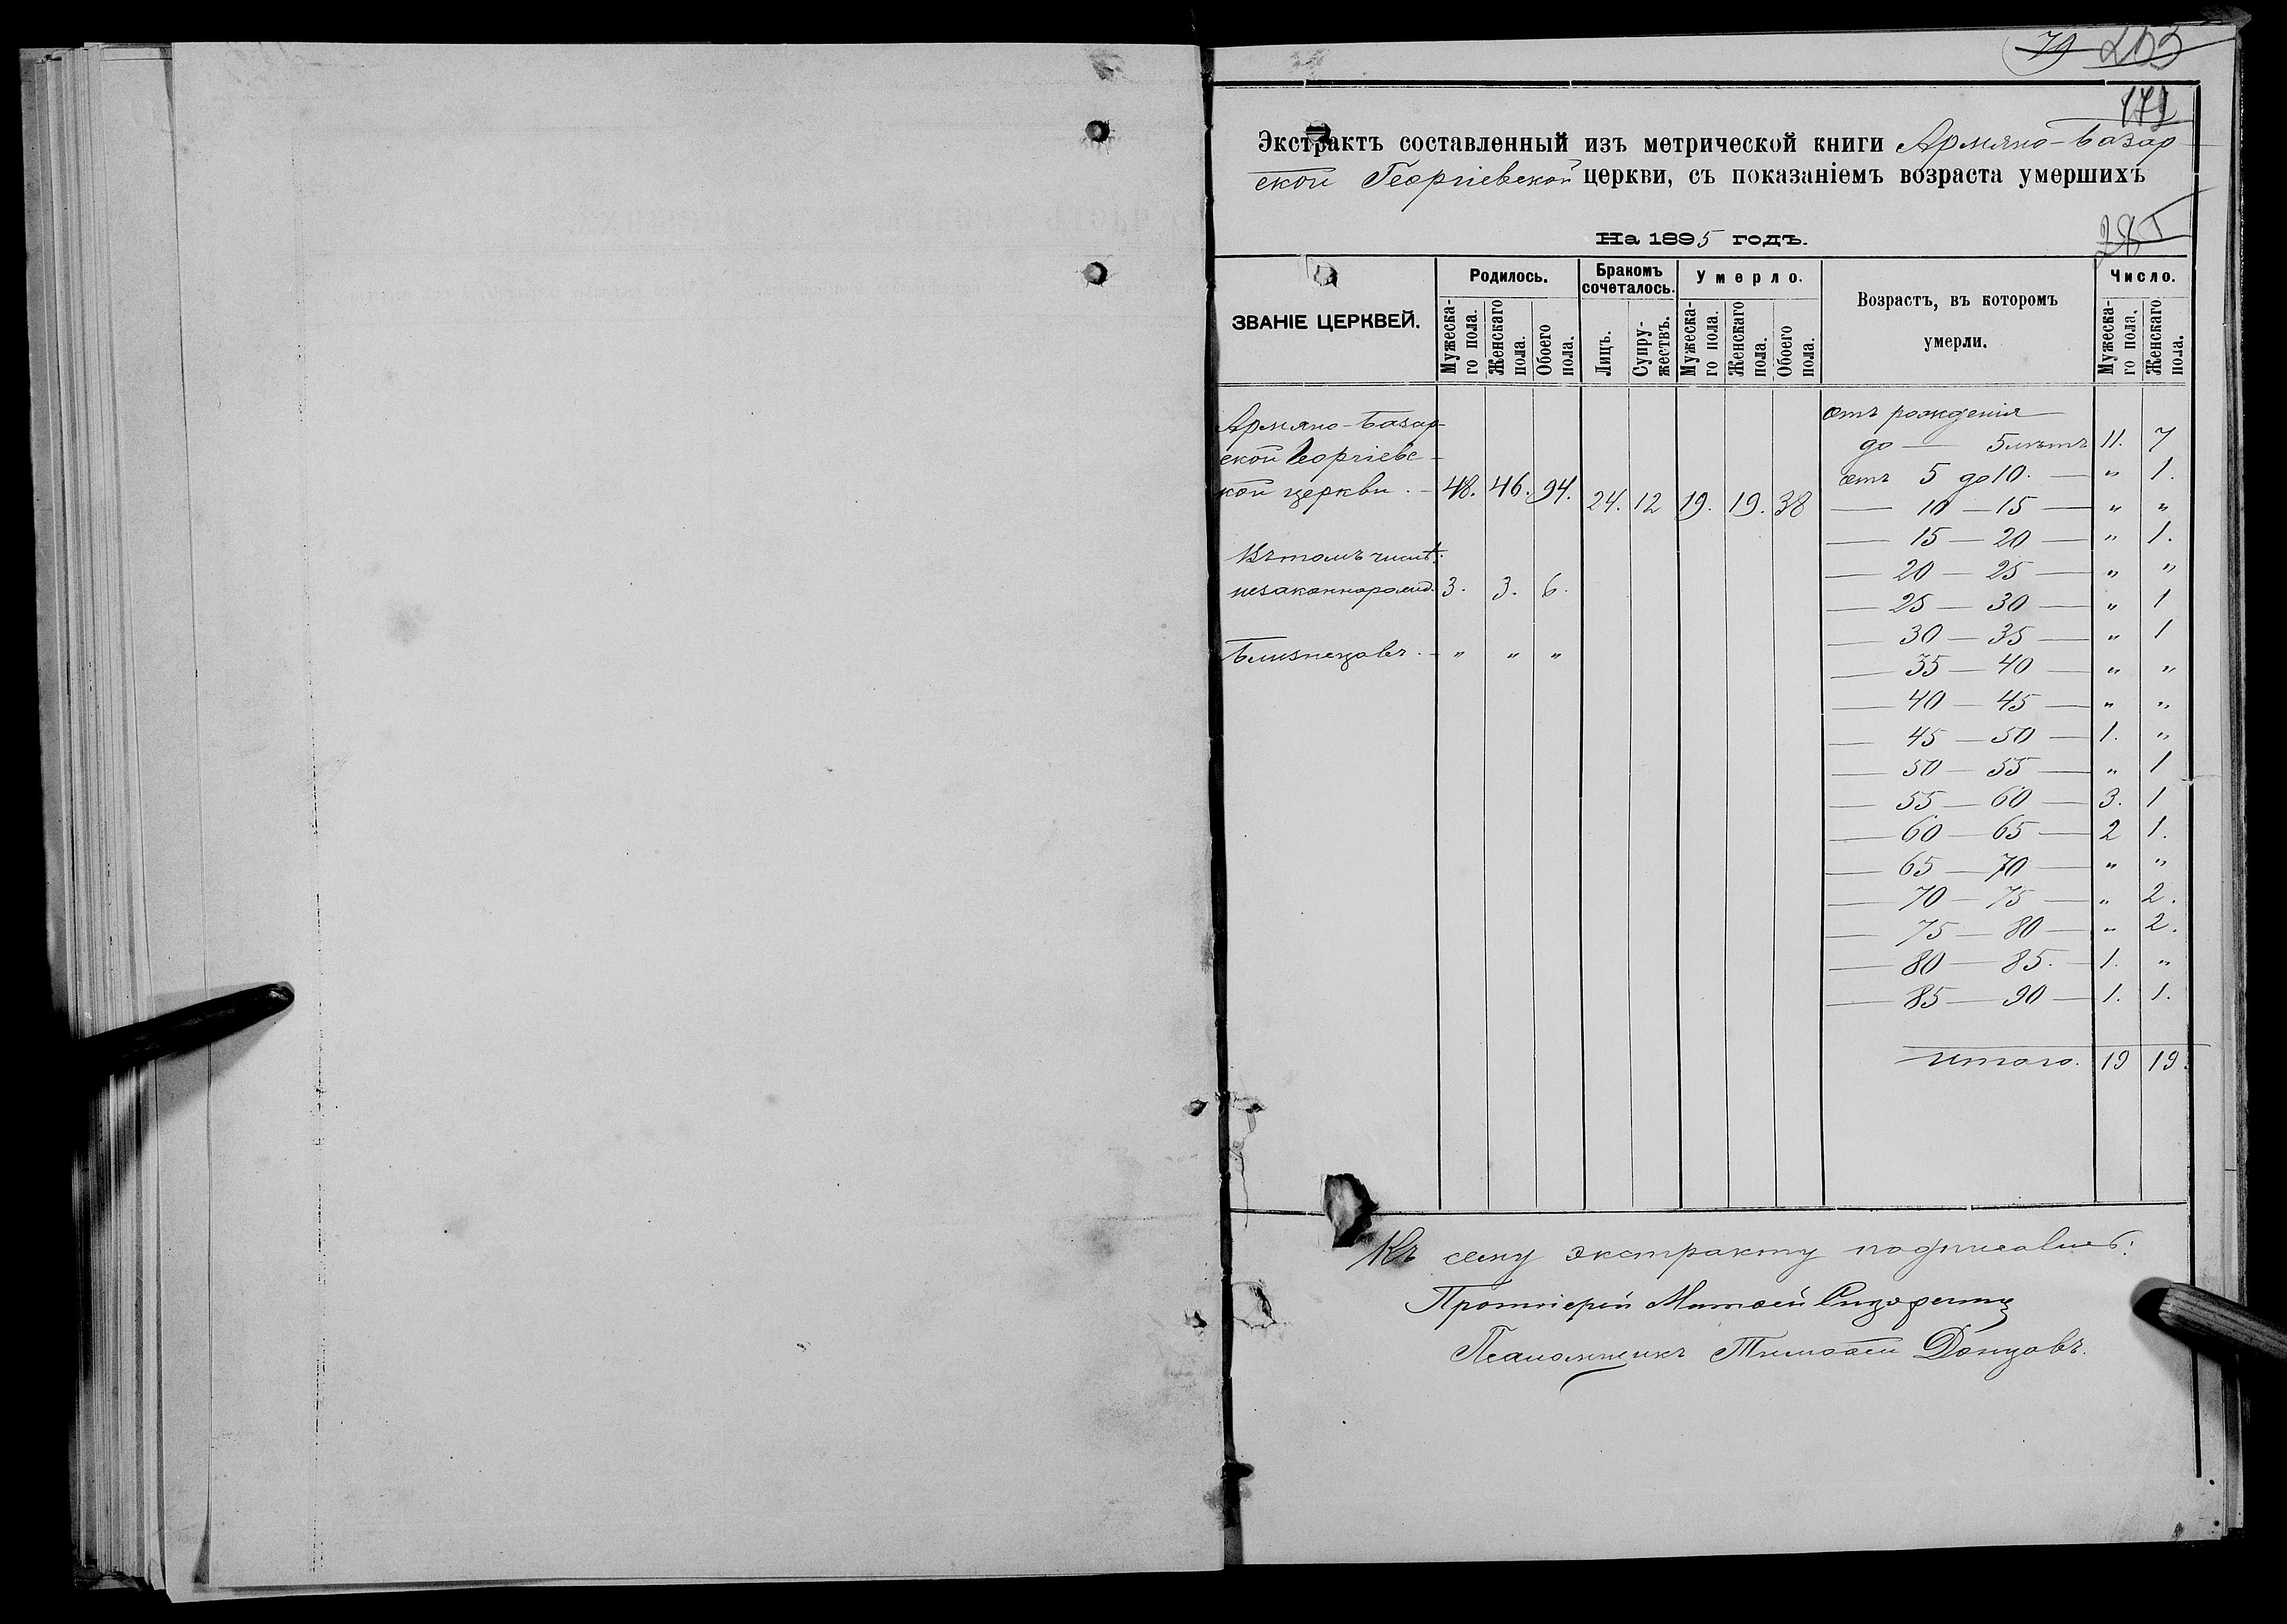 79 253
171
Экстрактъ составленный изъ метрической книги Армяно-Базар-
ской Георгіевской церкви, съ показаніемъ возраста умершихъ
На 1895 годъ.
ЗВАНІЕ ЦЕРКВЕЙ. Родилось. Бракомъ сочеталось. Умерло. Возрастъ, въ которомъ умерли. Число.
Мужеска-го пола. Женскаго пола. Обоего пола. Лицъ. Супру-жествъ. Мужеска-го пола. Женскаго пола. Обоего пола. Мужеска-го пола. Женскаго пола.
Армяно-Базар-
ской Георгіевс-
кой церкви. — 48. 46. 94. 24. 12 19. 19. 38
Въ томъ числѣ:
незаконнорожд. 3. 3. 6.
Близнецовъ. — „ „ „
отъ рожденія
до — 5 лѣтъ 11. 7
отъ 5 до 10. — „ 1.
— 10 — 15 — „ „
— 15 — 20 — „ 1.
— 20 — 25 — „ „
— 25 — 30 — „ 1
— 30 — 35 — „ 1
— 35 — 40 — „ „
— 40 — 45 — „ „
— 45 — 50 — 1. „
— 50 — 55 — „ 1
— 55 — 60 — 3. 1
— 60 — 65 — 2 1.
— 65 — 70 — „ „
— 70 — 75 — „ 2.
— 75 — 80 — „ 2.
— 80 — 85. — 1. „
— 85 — 90 — 1. 1.
Итого. 19 19.
Къ сему экстракту подписались:
Протоіерей Матѳей
Псаломщикъ Тимоѳей Донцовъ.